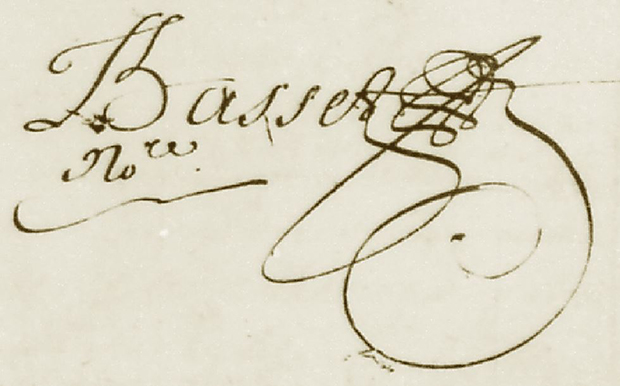 Basset
No.re